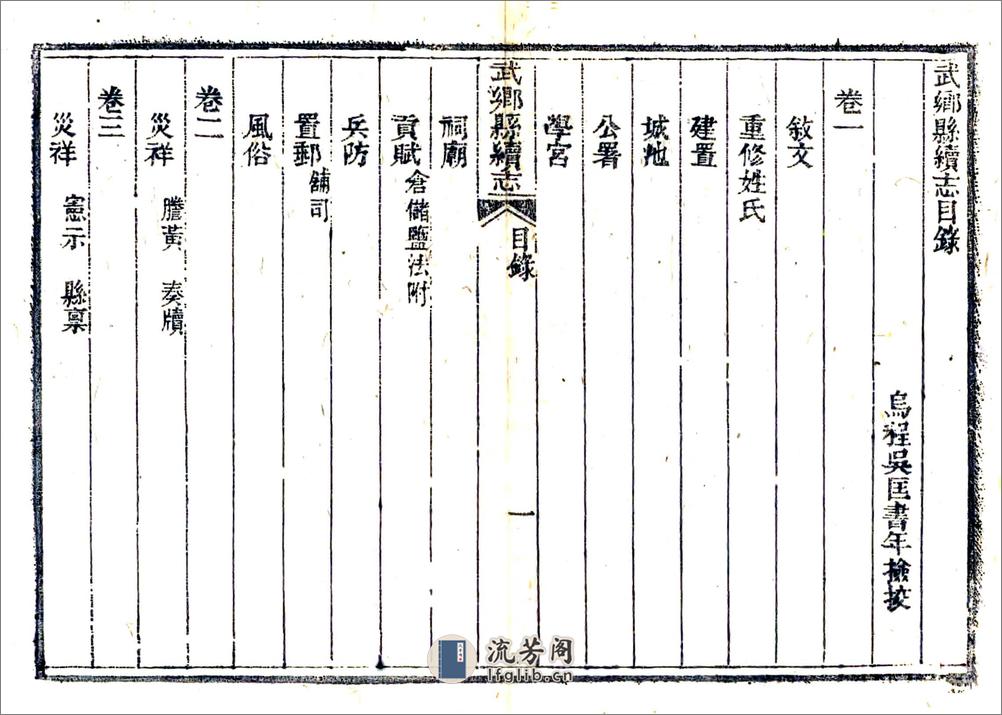 武鄉縣續志目錄
烏程吳匡書年撿挍
卷一
敘文
重修姓氏
建置
城池
公署
學宮
武鄉縣續志 目錄 一
祠廟
貢賦 倉儲鹽法附
兵防
置郵 舖司
風俗
卷二
災祥 謄黃 奏牘
卷三
災祥 憲示 縣稟
流芳阁
lfglib.cn